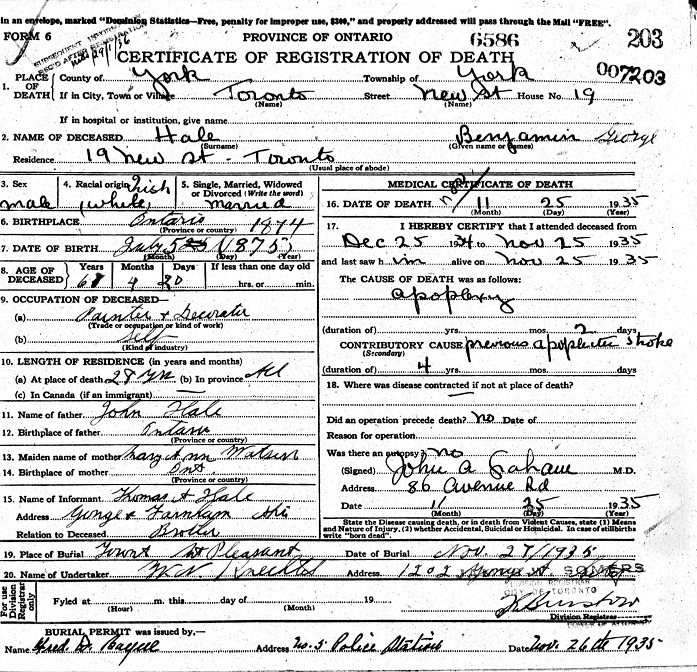 in an envelope, marked "Dominion Statistics—Free, penalty for improper use, $300," and property addressed will pass through the Mail "FREE".
FORM 6 PROVINCE OF ONTARIO 6586 203
CERTIFICATE OF REGISTRATION OF DEATH
007203
1. PLACE OF DEATH County of York Township of York
If in City, Town or Village Toronto (Name) Street New St (Name) House No. 19
If in hospital or institution, give name
2. NAME OF DECEASED Hale (Surname) Benjamin George (Given name or names)
Residence 19 New St - Toronto (Usual place of abode)
3. Sex male 4. Racial origin Irish (white) 5. Single, Married, Widowed or Divorced (Write the word) married
6. BIRTHPLACE Ontario (Province or country) 1874
7. DATE OF BIRTH July (Month) 5 (Day) (1875) (Year)
8. AGE OF DECEASED Years Months 4 Days 20 If less than one day old hrs. or min.
9. OCCUPATION OF DECEASED—
(a) Painter & Decorator (Trade or occupation or kind of work)
(b) self (Kind of industry)
10. LENGTH OF RESIDENCE (in years and months)
(a) At place of death 28 yrs (b) In province All
(c) In Canada (if an immigrant) —
11. Name of father John Hale
12. Birthplace of father Ontario (Province or country)
13. Maiden name of mother Mary Ann Watson
14. Birthplace of mother Ont (Province or country)
15. Name of Informant Thomas A Hale
Address Yonge & Farnham
Relation to Deceased Brother
MEDICAL CERTIFICATE OF DEATH
16. DATE OF DEATH 11 (Month) 25 (Day) 1935 (Year)
17. I HEREBY CERTIFY that I attended deceased from
Dec 25 1934 to Nov 25 1935
and last saw him alive on Nov 25 1935
The CAUSE OF DEATH was as follows:
apoplexy
(duration of) yrs. mos. 2 days
CONTRIBUTORY CAUSE (Secondary) previous apoplectic stroke
(duration of) 4 yrs. mos. days
18. Where was disease contracted if not at place of death?
—
Did an operation precede death? no Date of
Reason for operation
Was there an autopsy? no
(Signed) John A Graham M.D.
Address 86 Avenue Rd
Date 11 (Month) 25 (Day) 1935
State the Disease causing death, or in death from Violent Causes, state (1) Means and Nature of Injury, (2) whether Accidental, Suicidal or Homicidal. In case of stillbirths write "born dead".
19. Place of Burial Mt Pleasant Date of Burial Nov. 27/1935
20. Name of Undertaker W. N. Knechtel Address 1202 Yonge St.
SOMERS
CITY OF TORONTO
For use of Division Registrar only Fyled at (Hour) m. this day of (Month) 19 Division Registrar
BURIAL PERMIT was issued by,—
Name Fred D. Address No. 5 Police Station Date Nov. 26th 1935